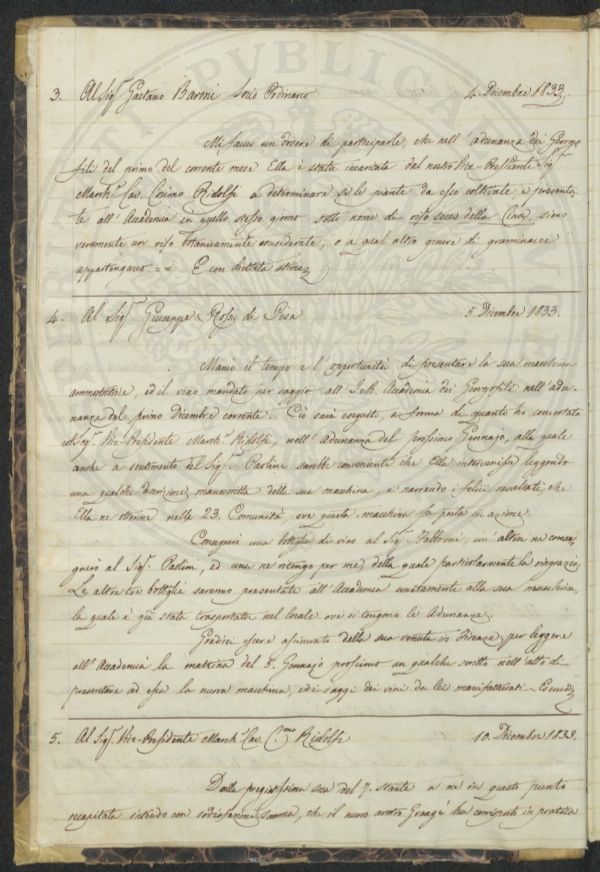 3. Al Sig.r Gaetano Baroni Socio Ordinario 4. Dicembre 1833.
Mi faccio un dovere di participarle, che nell' adunanza dei Georgo
fili del primo del corrente mese Ella è stata incaricata dal nostro Vice-Presidente Sig.r
March.e Cav. Cosimo Ridolfi a determinare se le piante da esso coltivate e presenta
te all' Accademia in quello stesso giorno sotto nome di riso secco della Cina, siano
veramente un riso botanicamente considerate, o a qual altro genere di graminacee
appartengano == E con distinta stima
4. Al Sig.r Giuseppe di Pisa 5. Dicembre 1833.
Mancò il tempo e l' opportunità di presentare la sua macchina
ammostatrice, ed il vino mandato per saggio all' I. e R. Accademia dei Georgofili nell' adu-
nanza del primo Dicembre corrente. Ciò sarà eseguito, a forma di quanto ho concertato
col Sig.r Vice-Presidente March.e Ridolfi, nell' Adunanza del prossimo Gennajo, alla quale
anche a sentimento del Sig.r Paolini sarebbe conveniente che Ella intervenisse leggendo
una qualche manoscritta della sua macchina, e narrando i felici resultati, che
Ella ne ottenne nelle 23. Comunità ove questa macchina fu posta in azione.
Consegnai una bottiglia di vino al Sig.r Fabbroni, un' altra ne conse-
gnerò al Sig.r Paolini, ed una ne ritengo per me, della quale particolarmente la ringrazio.
Le altre tre bottiglie saranno presentate all' Accademia unitamente alla sua macchina,
la quale è già stata trasportata nel locale ove si tengono le Adunanze.
Gradirei essere assicurato della sua venuta in Firenze per leggere
all' Accademia la mattina del 5. Gennajo prossimo un qualche scritto nell' atto di
presentare ad essa la nuova macchina, ed i saggi dei vini da lei manifatturati.
5. Al Sig.r Vice-Presidente March.e Cav. C.mo Ridolfi 10. Dicembre 1833.
Dalla pregiatissima sua del 7. stante a me in questo punto
recapitata intendo con sodisfazione somma, che il nuovo aratro Grangé ha corrisposto in pratica